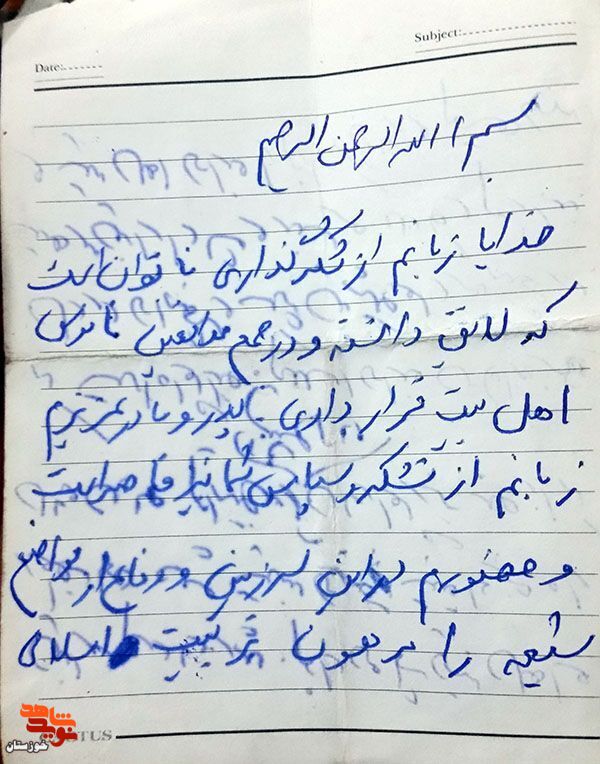 Subject:
Date:
بسم الله الرحمن الرحیم
خدایا زبانم از شکرگذاری ناتوان است
که لایق دانسته و در جمع مدافعین ناموس
اهل بیت قرار دادی پدر و مادر عزیزم
زبانم از تشکر و سپاس شما نیز قاصر است
و حضورم در این سرزمین و دفاع از مواضع
شیعه را مرهون تربیت اسلامی
نوید شاهد
خوزستان